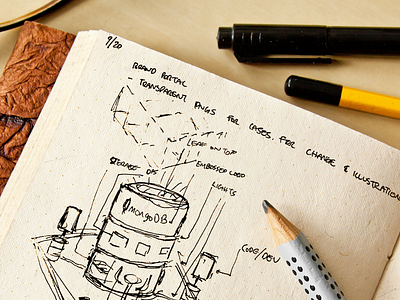 9/20
BRAND PORTAL
- TRANSPARENT PNGS FOR CASES. FOR CHANGE & ILLUSTRATION
LEAF ON TOP
STORAGE
EMBOSSED LOGO
LIGHTS
MONGODB
CODE/DEV